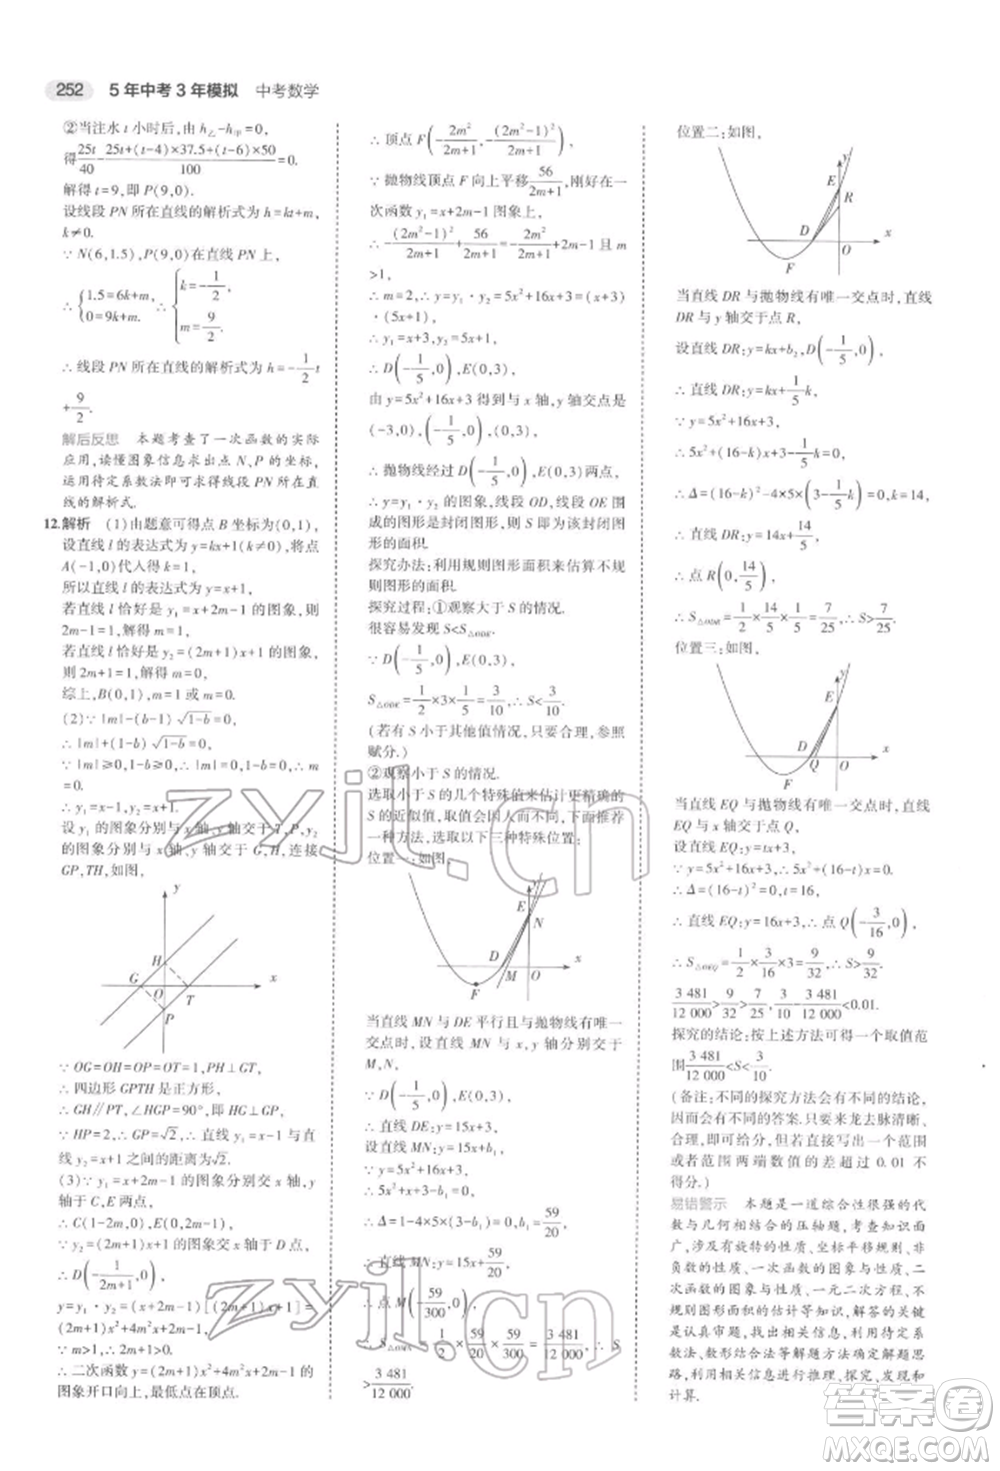 252 5年中考3年模拟 中考数学
②当注水 t 小时后,由 h乙-h甲=0,
得25t/40-[25t+(t-4)×37.5+(t-6)×50]/100=0.
解得 t=9,即 P(9,0).
设线段 PN 所在直线的解析式为 h=kt+m,
k≠0.
∵ N(6,1.5),P(9,0)在直线 PN 上,
∴ {1.5=6k+m, 0=9k+m. ∴ {k=-1/2, m=9/2.
∴ 线段 PN 所在直线的解析式为 h=-1/2 t
+9/2.
解后反思 本题考查了一次函数的实际
应用,读懂图象信息求出点 N、P 的坐标,
运用待定系数法可得线段 PN 所在直
线的解析式.
12.解析 (1)由题意可得点 B 坐标为(0,1),
设直线 l 的表达式为 y=kx+1(k≠0),将点
A(-1,0)代入得 k=1,
所以直线 l 的表达式为 y=x+1.
若直线 l 恰好是 y₁=x+2m-1 的图象,则
2m-1=1,解得 m=1,
若直线 l 恰好是 y₂=(2m+1)x+1 的图象,
则 2m+1=1,解得 m=0,
综上,B(0,1),m=1 或 m=0.
(2)∵ |m|-(b-1)√(1-b)=0,
∴ |m|+(1-b)√(1-b)=0,
∵ |m|≥0,1-b≥0,√(1-b)≥0,
∴ m=0,1-b=0,∴ m=0,b=1.
∴ y₁=x-1,y₂=x+1.
设 y₁ 的图象分别与 x 轴,y 轴交于 T,P,y₂
的图象分别与 x 轴、y 轴交于 G,H,连接
GP,TH,如图,
y
H
G O T x
P
∵ OG=OH=OP=OT=1,PH⊥GT,
∴ 四边形 GPTH 是正方形,
∴ GH∥PT,∠HGP=90°,即 HG⊥GP,
∵ HP=2,∴ GP=√2,∴ 直线 y₁=x-1 与
直线 y₂=x+1 之间的距离为√2.
(3)∵ y₁=x+2m-1 的图象分别交 x 轴,y
轴于 C,E 两点,
∴ C(1-2m,0),E(0,2m-1),
∵ y₂=(2m+1)x+1 的图象交 x 轴于 D 点,
∴ D(-1/(2m+1),0),
∵ y=y₁·y₂=(x+2m-1)[(2m+1)x+1]=
(2m+1)x²+4m²x+2m-1,
∵ m>1,∴ 2m+1>0,
∴ 二次函数 y=(2m+1)x²+4m²x+2m-1 的
图象开口向上,最低点在顶点.
∴ 顶点 F(-2m²/(2m+1),-(2m²-1)²/(2m+1)),
∵ 抛物线顶点 F 向上平移56/(2m+1),刚好在一
次函数 y₁=x+2m-1 图象上,
∴ -(2m²-1)²/(2m+1)+56/(2m+1)=-2m²/(2m+1)+2m-1 且 m
>1,
∴ m=2,∴ y=y₁·y₂=5x²+16x+3=(x+3)
·(5x+1),
∴ y₁=x+3,y₂=5x+1.
∴ D(-1/5,0),E(0,3),
由 y=5x²+16x+3 得到与 x 轴,y 轴交点是
(-3,0),(-1/5,0),(0,3),
∴ 抛物线经过 D(-1/5,0),E(0,3)两点,
∴ y=5x²+16x+3 的图象,线段 OD,线段 OE 围
成的图形是封闭图形,则 S 即为该封闭图
形的面积.
探究办法:利用规则图形面积来估算不规
则图形的面积.
探究过程:①观察大于 S 的情况.
很容易发现 S<S△ODE.
∵ D(-1/5,0),E(0,3),
S△ODE=1/2×3×1/5=3/10,∴ S<3/10.
(若有 S 小于其他值情况,只要合理,参照
赋分.)
②观察小于 S 的情况.
选取小于 S 的几个特殊值来估计更精确的
S 的近似值,取值会因人而不同,下面推荐
一种方法,选取以下三种特殊位置:
位置一:如图,
E
N
D
M O x
F
当直线 MN 与 DE 平行且与抛物线有唯一
交点时,设直线 MN 与 x,y 轴分别交于
M,N,
∵ D(-1/5,0),E(0,3),
∴ 直线 DE:y=15x+3,
设直线 MN:y=15x+b₁,
∵ y=5x²+16x+3,
∴ 5x²+x+3-b₁=0,
∴ Δ=1-4×5×(3-b₁)=0,b₁=59/20,
∴ 直线 MN:y=15x+59/20,
∴ 点 M(-59/300,0),
∴ S△OMN=1/2×59/20×59/300=3 481/12 000,∴ S
>3 481/12 000.
位置二:如图,
y
E
R
D O x
F
当直线 DR 与抛物线有唯一交点时,直线
DR 与 y 轴交于点 R,
设直线 DR:y=kx+b₂,D(-1/5,0),
∴ 直线 DR:y=kx+1/5 k,
∵ y=5x²+16x+3,
∴ 5x²+(16-k)x+3-k/5=0,
∴ Δ=(16-k)²-4×5×(3-k/5)=0,k=14,
∴ 直线 DR:y=14x+14/5,
∴ 点 R(0,14/5),
∴ S△ODR=1/2×14/5×1/5=7/25,∴ S>7/25.
位置三:如图,
y
E
D Q O x
F
当直线 EQ 与抛物线有唯一交点时,直线
EQ 与 x 轴交于点 Q,
设直线 EQ:y=tx+3,
∵ y=5x²+16x+3,
∴ 5x²+(16-t)x=0,
∴ Δ=(16-t)²=0,∴ t=16,
∴ 直线 EQ:y=16x+3,∴ 点 Q(-3/16,0),
∴ S△OEQ=1/2×3/16×3=9/32,∴ S>9/32.
3 481/12 000>9/32>7/25,3/10-3 481/12 000<0.01.
探究的结论:按上述方法可得一个取值范
围3 481/12 000<S<3/10.
(备注:不同的探究方法会有不同的结论,
因而会有不同的答案.只要来龙去脉清晰、
合理,即可得分.但探究结果若出现一个范围
或范围两端数值的差超过 0.01 不
得分.)
易错警示 本题是一道综合性很强的代
数与几何相结合的压轴题,考查知识面
广,涉及有旋转的性质、坐标平移规则、非
负数的性质、一次函数的图象与性质、二
次函数的图象与性质、一元二次方程、不
规则图形面积的估计等知识,解答的关键
是认真审题,找出相关信息,利用待定系
数法、数形结合法等解题方法确定解题思
路,利用相关信息进行推理、探究、发现和
计算.
zyjl.cn
zyjl.cn
答案圈
MXQE.COM